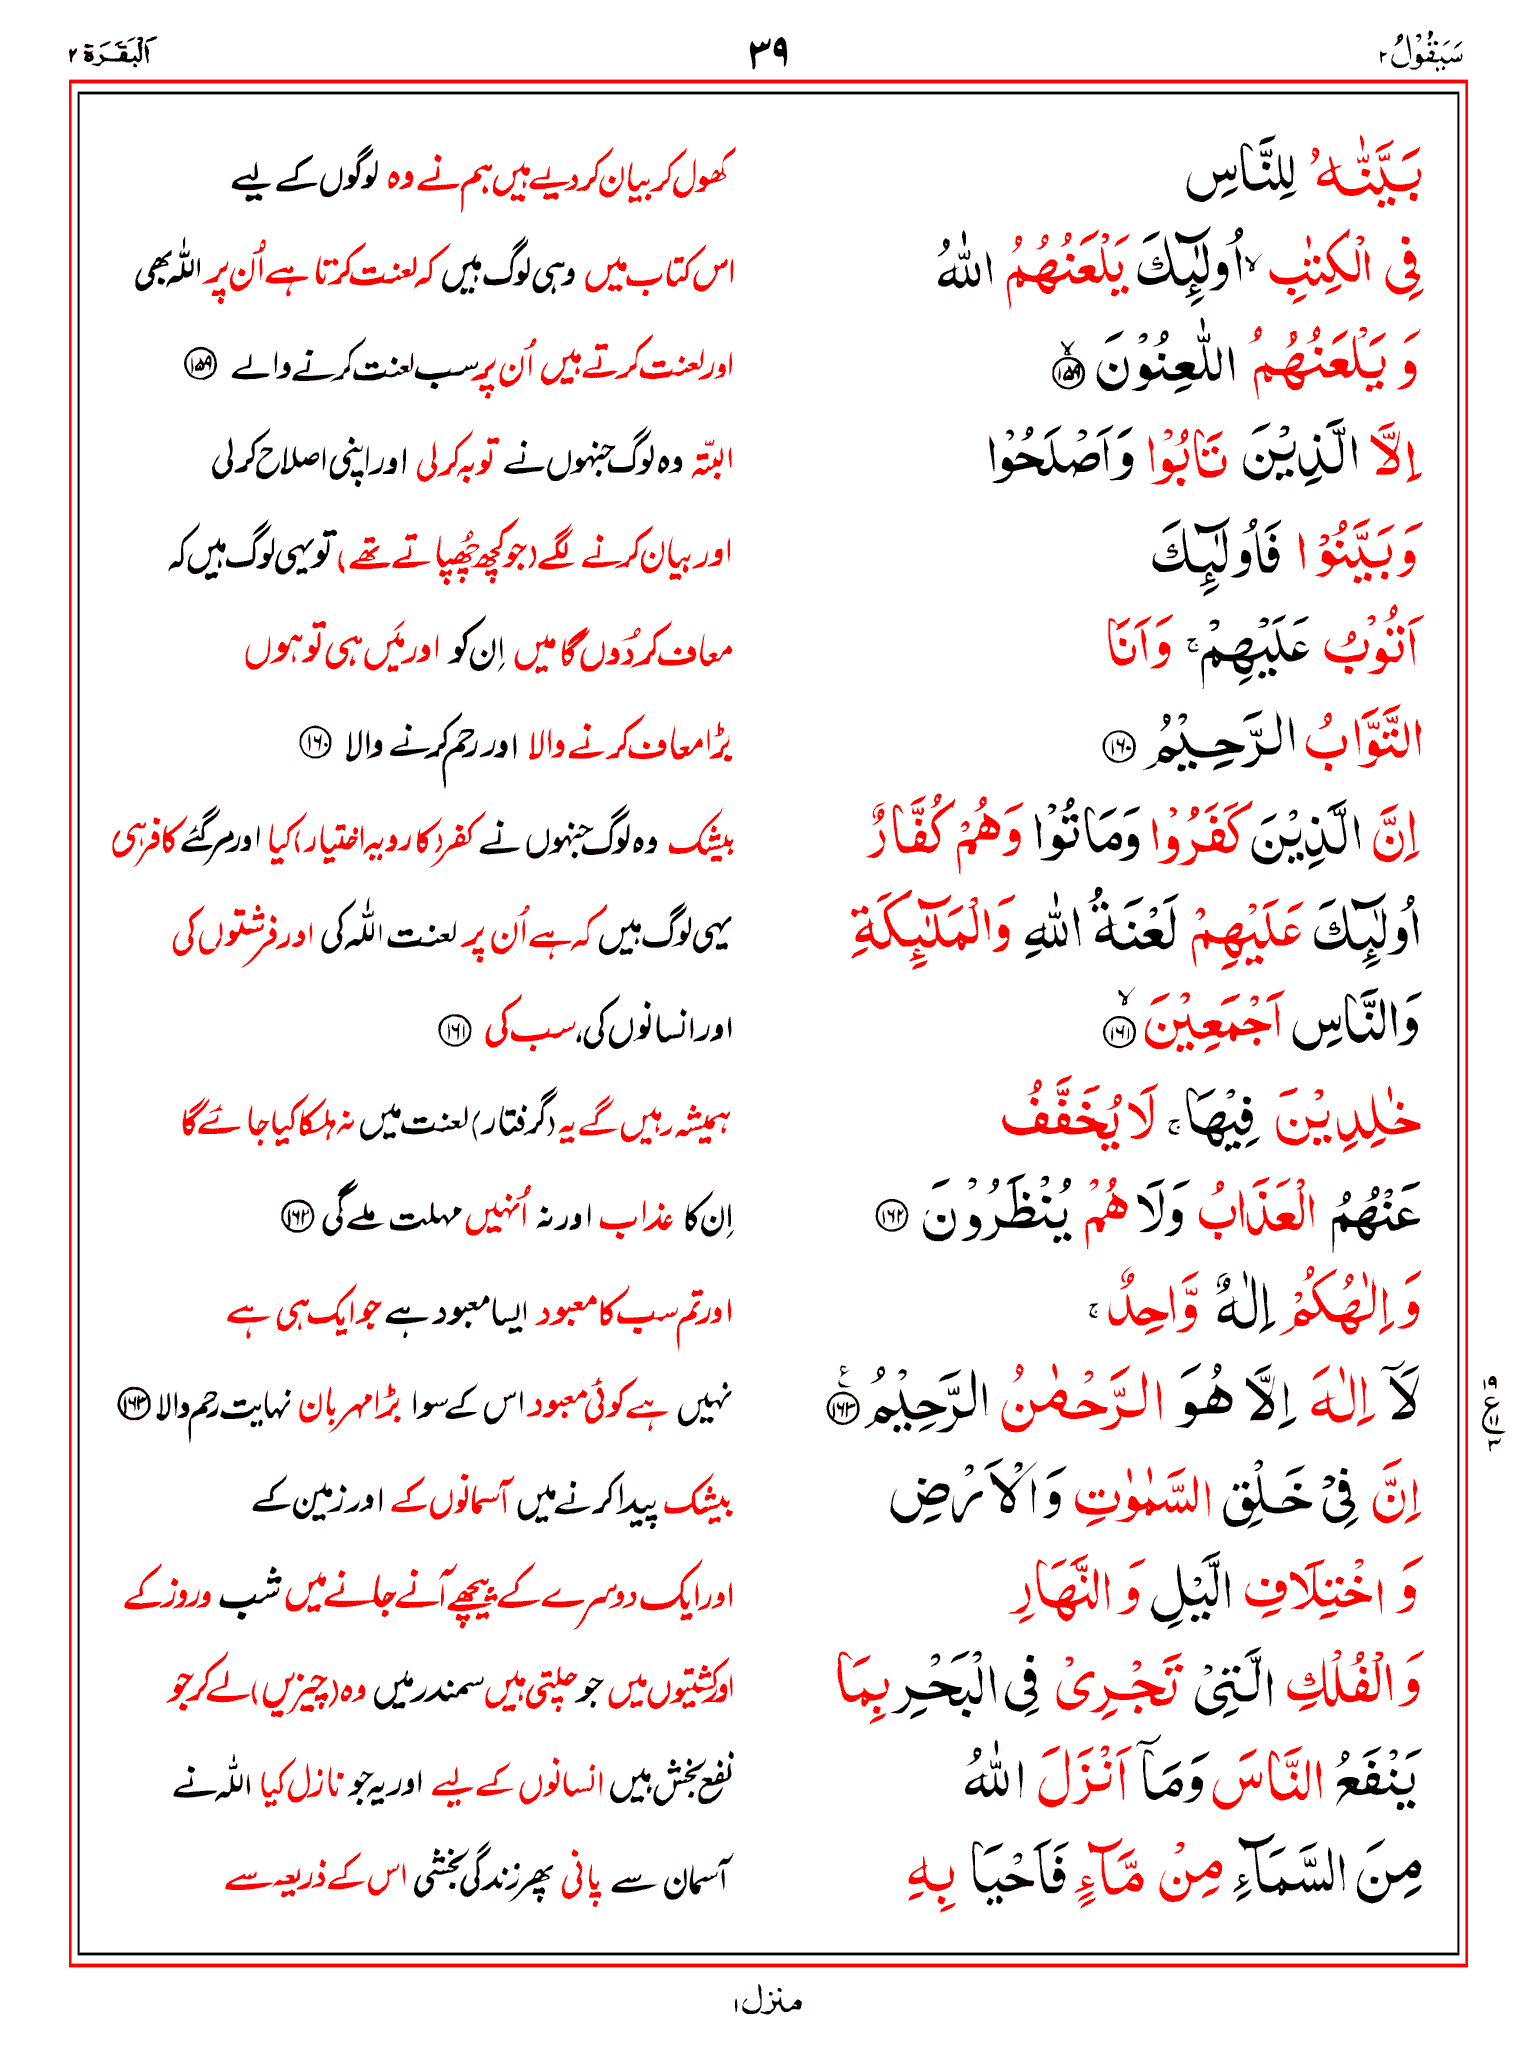 سَيَقُوْلُ ٢
٣٩
اَلْبَقَرَة ٢
بَيَّنّٰهُ لِلنَّاسِ
کھول کر بیان کردیے ہیں ہم نے وہ لوگوں کے لیے
فِى الْكِتٰبِ ۙ اُولٰٓئِكَ يَلْعَنُهُمُ اللّٰهُ
اس کتاب میں وہی لوگ ہیں کہ لعنت کرتا ہے اُن پر اللہ بھی
وَ يَلْعَنُهُمُ اللّٰعِنُوْنَ ۙ ﴿١٥٩﴾
اور لعنت کرتے ہیں اُن پر سب لعنت کرنے والے ﴿١٥٩﴾
اِلَّا الَّذِيْنَ تَابُوْا وَاَصْلَحُوْا
البتّہ وہ لوگ جنہوں نے توبہ کرلی اور اپنی اصلاح کرلی
وَبَيَّنُوْا فَاُولٰٓئِكَ
اور بیان کرنے لگے (جو کچھ چُھپاتے تھے) تو یہی لوگ ہیں کہ
اَتُوْبُ عَلَيْهِمْ ۚ وَاَنَا
معاف کردُوں گا میں اِن کو اور مَیں ہی تو ہوں
التَّوَّابُ الرَّحِيْمُ ﴿١٦٠﴾
بڑا معاف کرنے والا اور رحم کرنے والا ﴿١٦٠﴾
اِنَّ الَّذِيْنَ كَفَرُوْا وَمَاتُوْا وَهُمْ كُفَّارٌ
بیشک وہ لوگ جنہوں نے کفر (کا رویہ اختیار) کیا اور مر گئے کافر ہی
اُولٰٓئِكَ عَلَيْهِمْ لَعْنَةُ اللّٰهِ وَالْمَلٰٓئِكَةِ
یہی لوگ ہیں کہ ہے اُن پر لعنت اللہ کی اور فرشتوں کی
وَالنَّاسِ اَجْمَعِيْنَ ۙ ﴿١٦١﴾
اور انسانوں کی، سب کی ﴿١٦١﴾
خٰلِدِيْنَ فِيْهَا ۚ لَا يُخَفَّفُ
ہمیشہ رہیں گے یہ (گرفتار) لعنت میں نہ ہلکا کیا جائے گا
عَنْهُمُ الْعَذَابُ وَلَا هُمْ يُنْظَرُوْنَ ﴿١٦٢﴾
اِن کا عذاب اور نہ اُنہیں مہلت ملے گی ﴿١٦٢﴾
وَ اِلٰهُكُمْ اِلٰهٌ وَّاحِدٌ ۚ
اور تم سب کا معبود ایسا معبود ہے جو ایک ہی ہے
لَآ اِلٰهَ اِلَّا هُوَ الرَّحْمٰنُ الرَّحِيْمُ ﴿١٦٣﴾ ع
نہیں ہے کوئی معبود اس کے سوا بڑا مہربان نہایت رحم والا ﴿١٦٣﴾
١٩ ع ١١ ٣
اِنَّ فِىْ خَلْقِ السَّمٰوٰتِ وَالْاَرْضِ
بیشک پیدا کرنے میں آسمانوں کے اور زمین کے
وَ اخْتِلَافِ الَّيْلِ وَ النَّهَارِ
اور ایک دوسرے کے پیچھے آنے جانے میں شب و روز کے
وَالْفُلْكِ الَّتِىْ تَجْرِىْ فِى الْبَحْرِ بِمَا
اور کشتیوں میں جو چلتی ہیں سمندر میں وہ (چیزیں) لے کر جو
يَنْفَعُ النَّاسَ وَمَآ اَنْزَلَ اللّٰهُ
نفع بخش ہیں انسانوں کے لیے اور یہ جو نازل کیا اللہ نے
مِنَ السَّمَآءِ مِنْ مَّآءٍ فَاَحْيَا بِهِ
آسمان سے پانی پھر زندگی بخشی اس کے ذریعہ سے
منزل ١